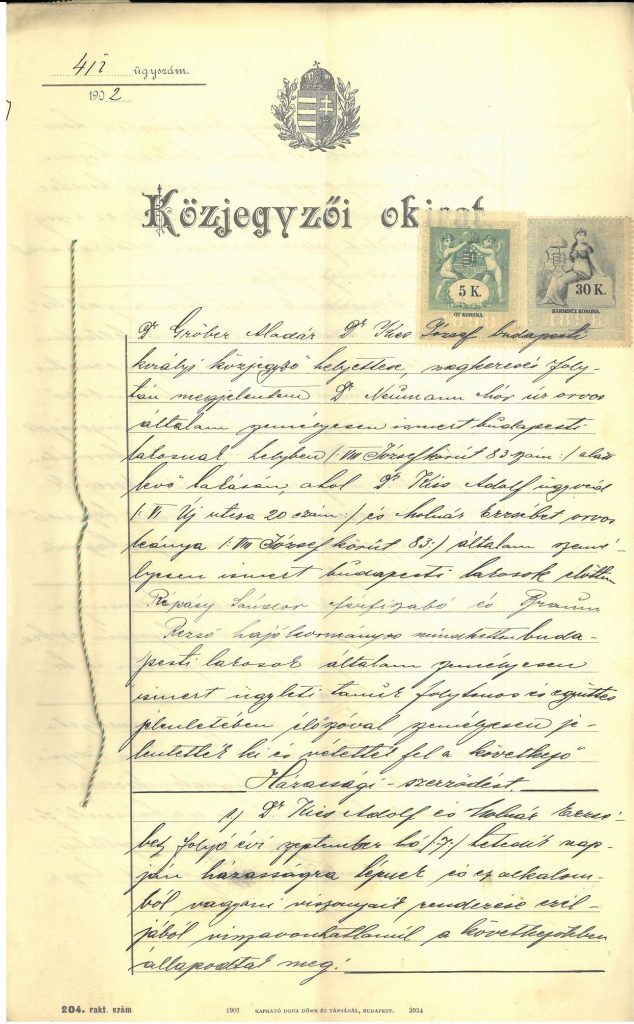 411 ügyszám.
1902
Közjegyzői okirat
5 K.
ÖT KORONA.
30 K.
HARMINCZ KORONA.
Dr Gröber Aladár Dr Kiss József budapesti
királyi közjegyző helyettese, megkeresés foly-
tán megjelentem Dr Neumann Mór úr orvos
általam személyesen ismert budapesti
lakosnak helyben /: VIII Józsefkörút 83 szám :/ alatt
levő lakásán, ahol Dr Kiss Adolf ügyvéd
/: VI. Új utcza 20 szám :/ és Molnár Erzsébet orvos
leánya /: VIII Józsefkörút 83 :/ általam szemé-
lyesen ismert budapesti lakosok előttem
Répásy Sándor férfiszabó és Braun
Rezső hajókormányos mindketten buda-
pesti lakosok általam személyesen
ismert ügyleti tanúk folytonos és együttes
jelenlétében élőszóval személyesen je-
lentették ki és vétették fel a következő
Házassági-szerződést.
1) Dr Kiss Adolf és Molnár Erzsé-
bet folyó évi szeptember hó /:7:/ hetedik nap-
ján házasságra lépnek és ez alkalom-
ból vagyoni viszonyaik rendezése czél-
jából visszavonhatlanúl a következőkben
állapodtak meg:
204. rakt. szám.
1901 KAPHATÓ DONA DÖME ÉS TÁRSÁNÁL, BUDAPEST. 3934